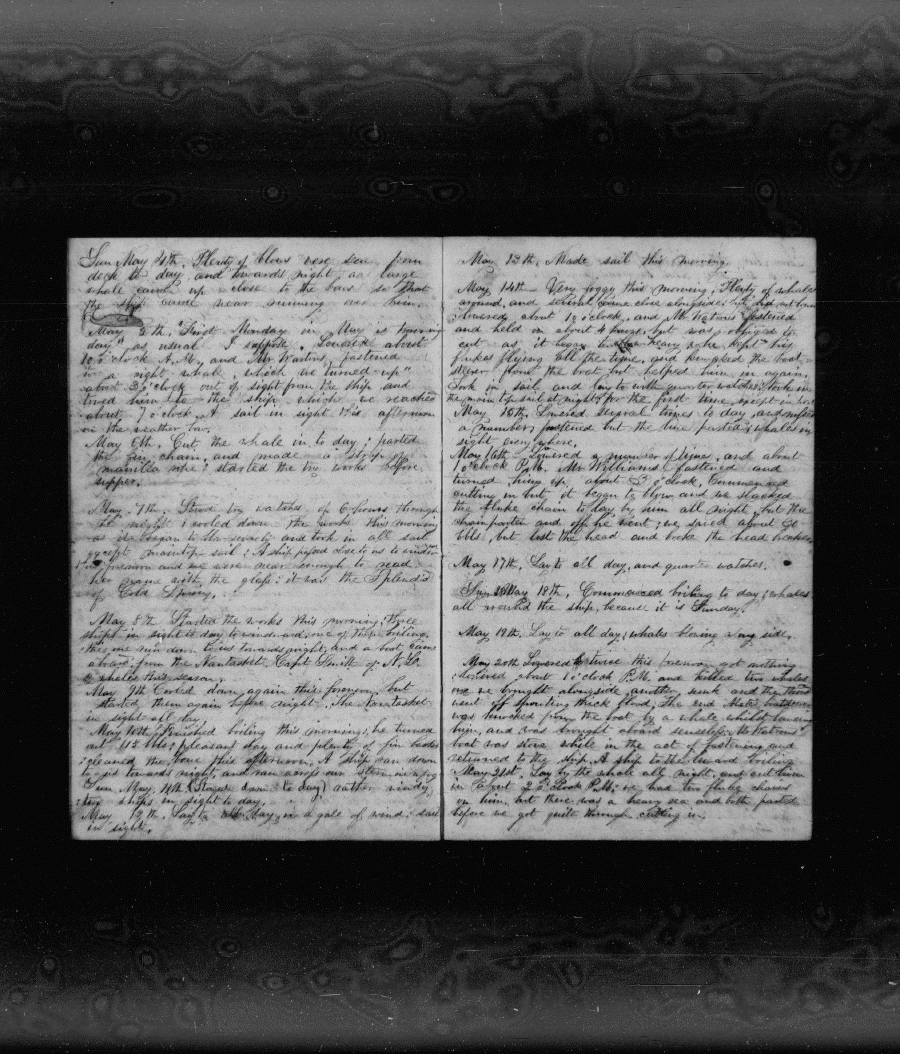 Sun May 4th. Plenty of blows were seen from
deck to day, and towards night, a large
whale came up close to the bows so that
the ship came near running over him.
May 5th. "First Monday in May is training
day" as usual I suppose. Lowered about
10 o'clock A.M. and Mr Watrus fastened
to a right whale, which we "turned up"
about 3 o'clock out of sight from the ship, and
towed him to the ship, which we reached
about 7 o'clock. A sail in sight this afternoon
on the weather bow.
May 6th. Cut the whale in to day; parted
the fin chain, and made a strop of
manilla rope; started the try works before
supper.
May 7th. Stood try watches of 6 hours through
the night; cooled down the works this morning
as it began to and took in all sail
except maintop sail; A ship passed close to us to windward
this forenoon and we were near enough to read
her name with the glass; it was the Splendid
of Cold Spring.
May 8th Started the works this morning, three
ships in sight to day to windward; one of them boiling,
this one run down to us towards night, and a boat came
aboard; from the Nantasket, Capt Smith of N. L.
2 whales this season.
May 9th Cooled down again this forenoon, but
started them again before night. The Nantasket
in sight all day.
May 10th, Finished boiling this morning; he turned
out 115 bbls; pleasant day and plenty of fin backs
; cleaned the bone this afternoon. A ship ran down
to us towards night, and ran across our stern in a fog
Sun May, 11th. rather windy,
two ships in sight to day.
May 12th. Lay to all day, in a gale of wind; sail
in sight.
May 13th, Made sail this morning.
May 14th Very foggy this morning, Plenty of whales
around, and several came close alongside;
lowered about 10 o'clock, and Mr Watrus fastened
and held on about 4 hours, but was obliged to
cut as it began to blow heavy; whale kept his
flukes flying all the time, and knocked the boat-
steerer from the boat but helped him in again,
Took in sail, and lay to with quarter watches; took in
the main top sail at night, for the first time
May 15th, Lowered several times to day, and missed
a number; fastened but the line parted; whales in
sight everywhere.
May 16th Lowered a number of times, and about
1 o'clock P.M. Mr Williams fastened and
turned him up about 3 o'clock, Commenced
cutting in but it began to blow and we slacked
the fluke chain to lay by him all night, but the
chain parted and off he went; we saved about 20
bbls, but lost the head and broke the head
May 17th, Lay to all day, and quarter watches.
Sun May 18th, Commenced boiling to day; whales
all around the ship, because it is Sunday.
May 19th, Lay to all day; whales blowing along side.
May 20th Lowered twice this forenoon got nothing
Lowered about 1 o'clock P.M. and killed two whales
one we brought alongside, another sunk and the third
went off spouting thick blood, The 2nd Mates boatsteerer
was knocked from the boat by a whale whilst lancing
him, and was brought aboard senseless. Mr Watrus'
boat was stove while in the act of fastening and
returned to the ship. A ship to the leeward boiling
May 21st. Lay by the whale all night, and cut him
in to part 2 o'clock P.M.; we had two fluke chains
on him, but there was a heavy sea and both parted
before we got quite through cutting in.